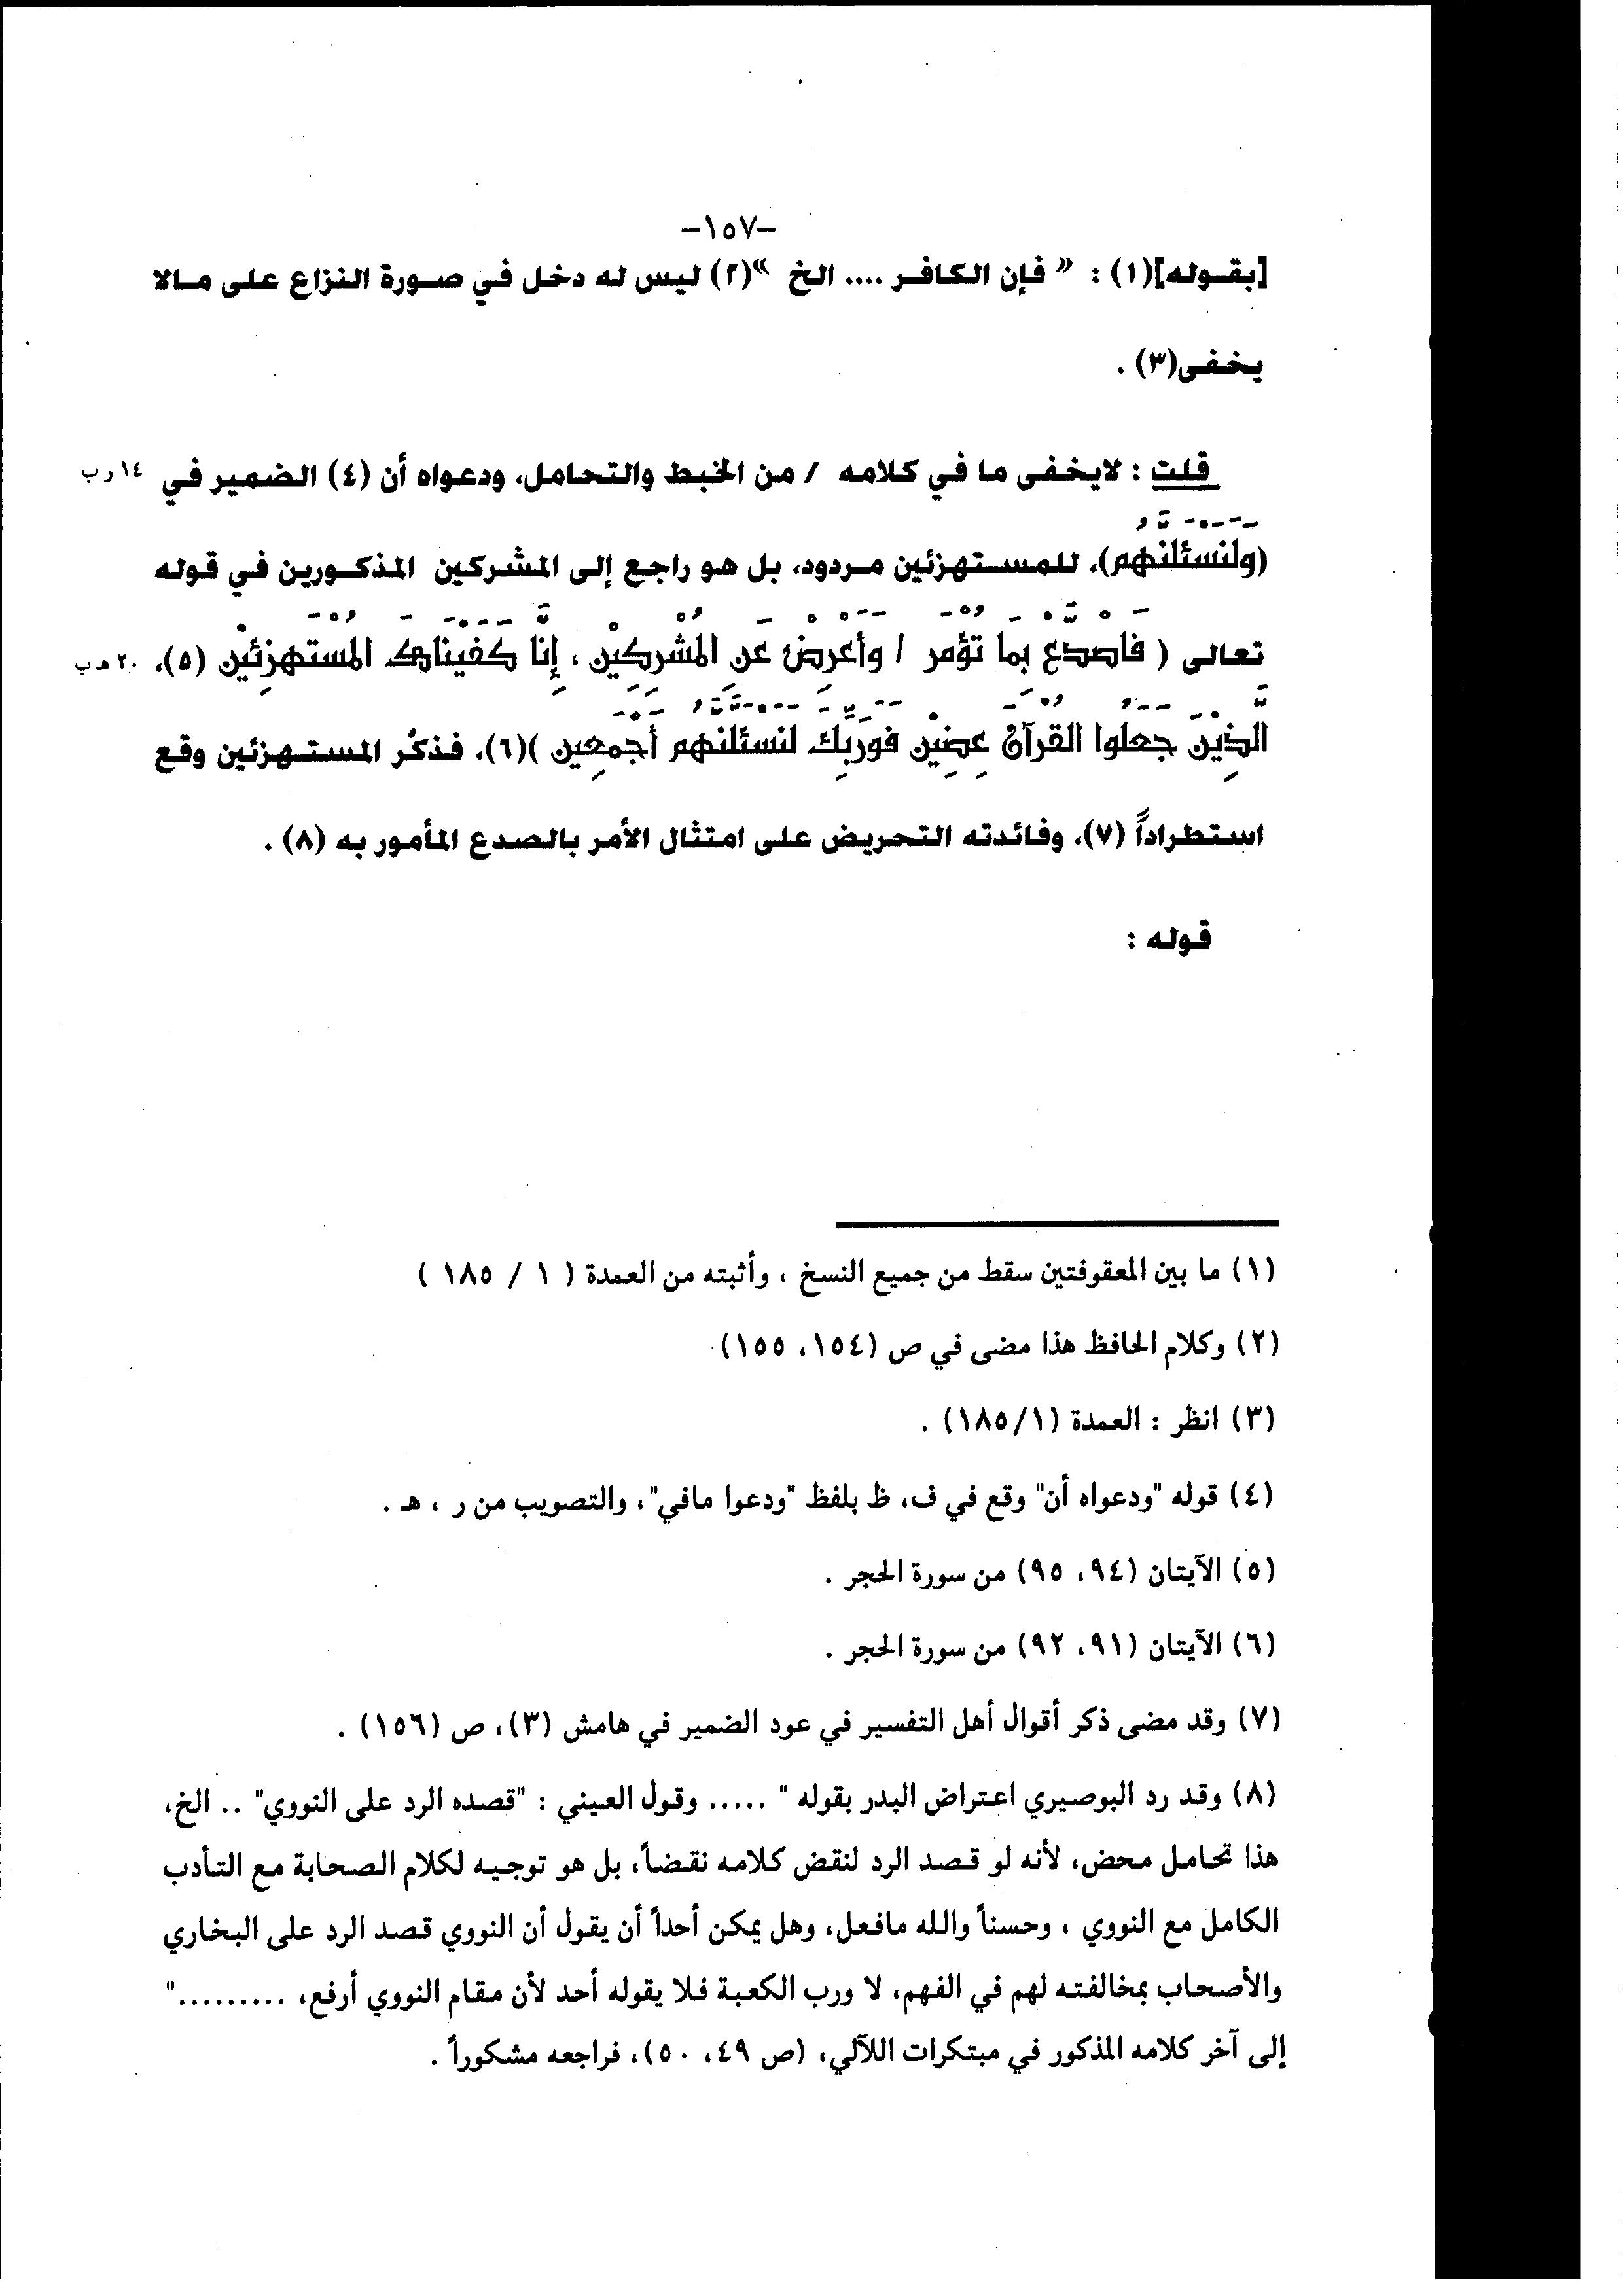 -١٥٧-
[بقوله](١) : « فإن الكافر .... الخ »(٢) ليس له دخل في صورة النزاع على مالا
يخفى(٣) .
قلت : لايخفى ما في كلامه / من الخبط والتحامل، ودعواه أن (٤) الضمير في ١٤ ر ب
(ولَنَسْئَلَنَّهُم)، للمستهزئين مردود، بل هو راجع إلى المشركين المذكورين في قوله
تعالى ( فَاصْدَعْ بِمَا تُؤْمَر / وأَعْرِضْ عَنِ المُشْرِكِيْن ، إِنَّا كَفَيْنَاكَ المُسْتَهْزِئِيْن (٥)، ٢٠ هـ ب
الَّذِيْنَ جَعَلُوا القُرآنَ عِضِيْن فَوَرَبِّكَ لَنَسْئَلَنَّهُم أَجْمَعِين )(٦)، فذكْر المستهزئين وقع
استطراداً (٧)، وفائدته التحريض على امتثال الأمر بالصدع المأمور به (٨) .
قوله :
(١) ما بين المعقوفتين سقط من جميع النسخ ، وأثبته من العمدة ( ١ / ١٨٥ )
(٢) وكلام الحافظ هذا مضى في ص (١٥٤، ١٥٥)
(٣) انظر : العمدة (١/١٨٥) .
(٤) قوله "ودعواه أن" وقع في ف، ظ بلفظ "ودعوا مافي"، والتصويب من ر ، هـ .
(٥) الآيتان (٩٤، ٩٥) من سورة الحجر .
(٦) الآيتان (٩١، ٩٢) من سورة الحجر .
(٧) وقد مضى ذكر أقوال أهل التفسير في عود الضمير في هامش (٣)، ص (١٥٦) .
(٨) وقد رد البوصيري اعتراض البدر بقوله " ..... وقول العيني : "قصده الرد على النووي" .. الخ،
هذا تحامل محض، لأنه لو قصد الرد لنقض كلامه نقضاً، بل هو توجيه لكلام الصحابة مع التأدب
الكامل مع النووي ، وحسناً والله مافعل، وهل يمكن أحداً أن يقول أن النووي قصد الرد على البخاري
والأصحاب بمخالفته لهم في الفهم، لا ورب الكعبة فلا يقوله أحد لأن مقام النووي أرفع، ........."
إلى آخر كلامه المذكور في مبتكرات اللآلي، (ص ٤٩، ٥٠)، فراجعه مشكوراً .